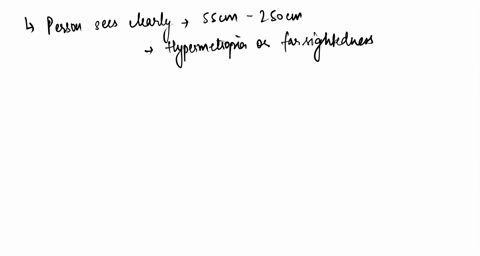 ↳ Person sees clearly → 55cm - 250cm
→ Hypermetropia or farsightedness